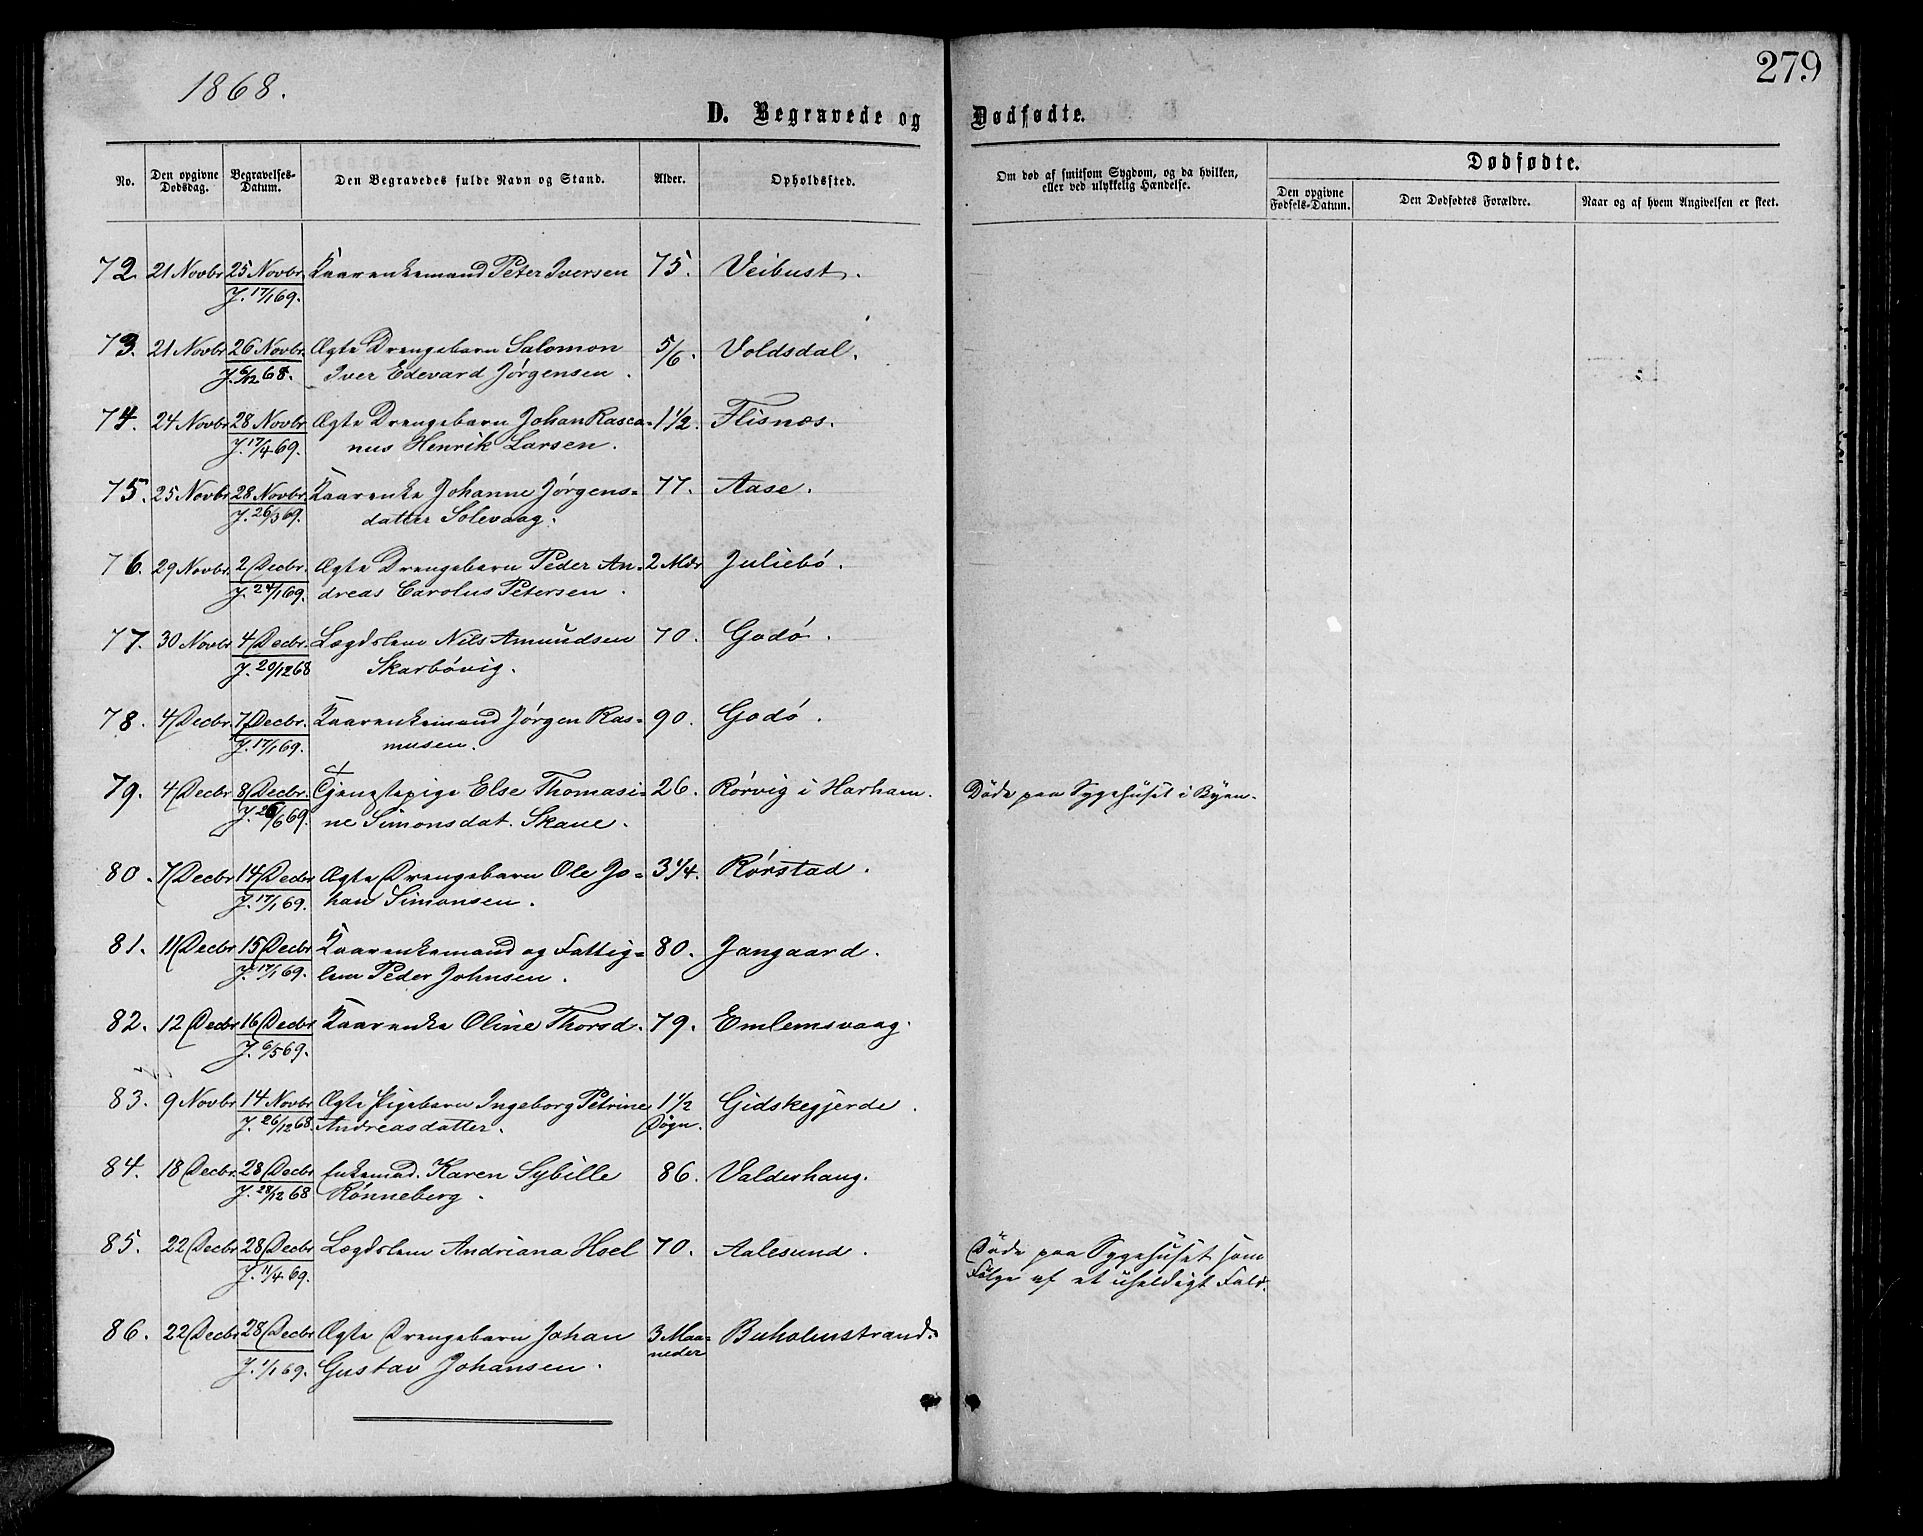 279
1868.
D. Begravede og Dødfødte.
No. Den opgivne Dødsdag. Begravelses-Datum. Den Begravedes fulde Navn og Stand. Alder. Opholdssted. Om død af smitsom Sygdom, og da hvilken, eller ved ulykkelig Hændelse. Dødfødte.
Den opgivne Fødsels-Datum. Den Dødfødtes Forældre. Naar og af hvem Angivelsen er skeet.
72. 21 Novbr 25 Novbr. Kaarenkemand Peter Iversen 75. Veibust.
J. 17/1 69.
73. 21 Novbr 26 Novbr. Ægte Drengebarn Salomon 5/6. Voldsdal.
J. 6/12 68. Iver Edevard Jørgensen.
74. 24 Novbr 28 Novbr. Ægte Drengebarn Johan Rasca= 1 1/2. Flisnæs.
J. 17/4 69. nus Henrik Larsen.
75. 25 Novbr 28 Novbr. Kaarenke Johanne Jørgens= 77. Aase.
J. 26/3 69. datter Solevaag.
76. 29 Novbr. 2 Decbr. Ægte Drengebarn Peder An= 2 Mdr Juliebø.
J. 24/1 69. dreas Carolus Petersen.
77. 30 Novbr 4 Decbr. Lægdslem Nils Amundsen 70. Godø.
J. 20/12 68 Skarbøvig.
78. 4 Decbr. 7 Decbr. Kaarenkemand Jørgen Ras= 90. Godø.
J. 17/1 69. musen.
79. 4 Decbr 8 Decbr. Tjenestepige Else Thomasi= 26. Rørvig i Harham. Døde paa Sygehuset i Byen.
J. 26/6 69. ne Simonsdat. Skaue.
80. 7 Decbr 14 Decbr Ægte Drengebarn Ole Jo= 3 1/4. Rørstad.
J. 17/1 69. han Simonsen.
81. 11 Decbr 15 Decbr Kaarenkemand og Fattig= 80. Jangaard.
J. 17/1 69. lem Peder Johnsen.
82. 12 Decbr 16 Decbr Kaarenke Oline Thorsd. 79. Emlemsvaag.
J. 6/5 69.
83. 9 Novbr 14 Novbr Ægte Pigebarn Ingeborg Petrine 1 1/2 Gidskegjerde.
J. 26/12 68. Andreasdatter. Døgn.
84. 18 Decbr. 28 Decbr Enkemad. Karen Sybille 86. Valderhaug.
J. 28/12 68 Rønneberg.
85. 22 Decbr 28 Decbr Lægdslem Andriana Hoel 70. Aalesund. Døde paa Sygehuset som
J. 11/4 69. Følge af et uheldigt Fald.
86. 22 Decbr 28 Decbr Ægte Drengebarn Johan 3 Maa= Buholmstrand.
J. 1/1 69. Gustav Johansen. neder